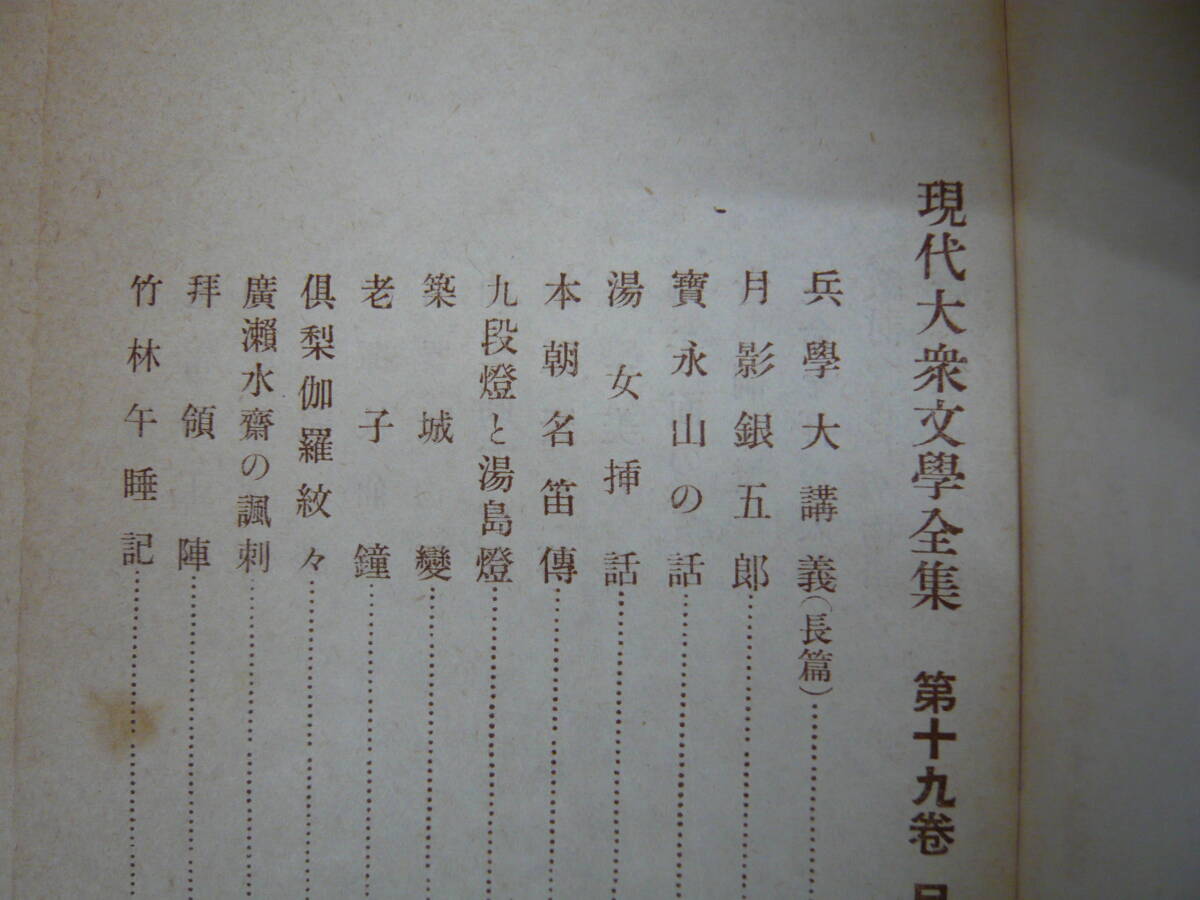 現代大衆文學全集 第十九卷
兵學大講義（長篇）
月影銀五郎
寶永山の話
湯女挿話
本朝名笛傳
九段燈と湯島燈
築城變
老子鐘
俱梨伽羅紋々
廣瀨水齋の諷刺
拜領陣
竹林午睡記